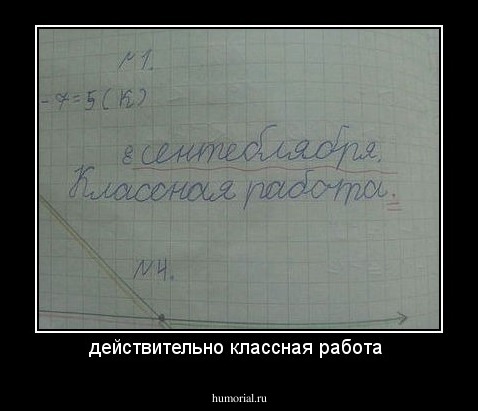 №1.
-7=5(К)
8 сентеблября.
Классная работа.
№4.
действительно классная работа
humorial.ru